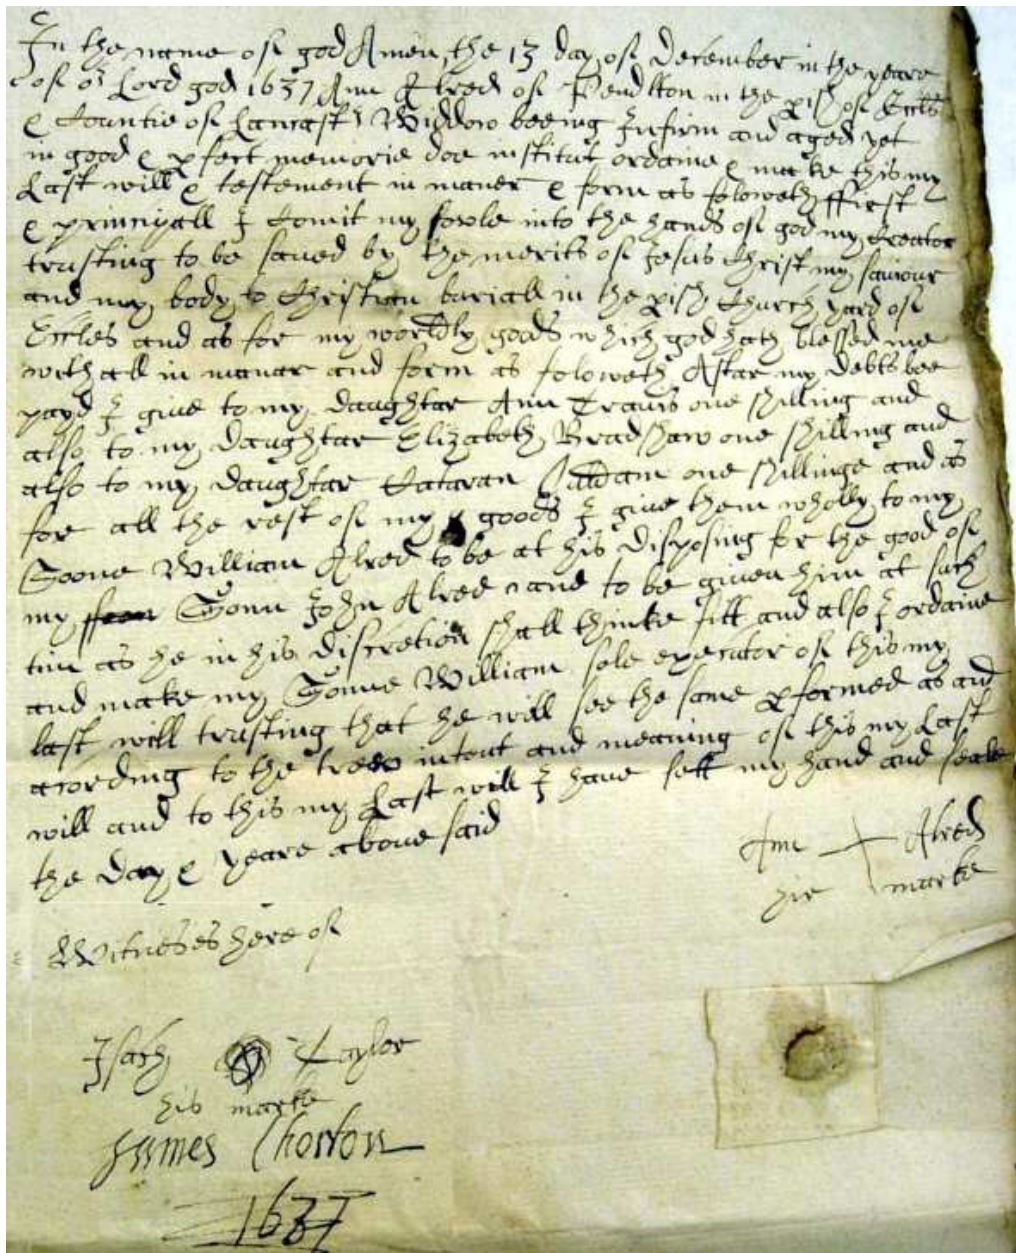 In the name of god Amen, the 13 day of December in the yeare
of or Lord god 1637 Ann Alred of Pendlton in the pish of Eccles
& Countie of Lancastr Widdow beeing Infirm and aged yet
in good & pfect memorie doe institut ordaine & make this my
Last will & testement in maner & form as foloweth, ffirst
& princypall I comit my sowle into the hands of god my Creator
trusting to be saved by the merits of Jesus Christ my saviour
and my body to Christian buriall in the pish Church yard of
Eccles and as for my worldly goods which god hath blessed me
withall in manar and form as foloweth Aftar my debts bee
payd I give to my daughtar Ann Travis one shilling and
also to my daughtar Elizabeth Bradshaw one shilling and
also to my daughtar Cataran one shillinge and as
for all the rest of my goods I give them wholly to my
Soone William Alred to be at his disposing for the good of
my Sonn John Alred and to be given him at such
tim as he in his discretion shall thinke fitt and also I ordaine
and make my Sonne William sole executor of this my
last will trusting that he will see the same pformed as and
acording to the trew intent and meaning of this my Last
will and to this my Last will I have sett my hand and seale
the day & yeare above said
Ann Alred
hir marke
Witneses here of
Isach Taylor
his marke
James Chorton
1637